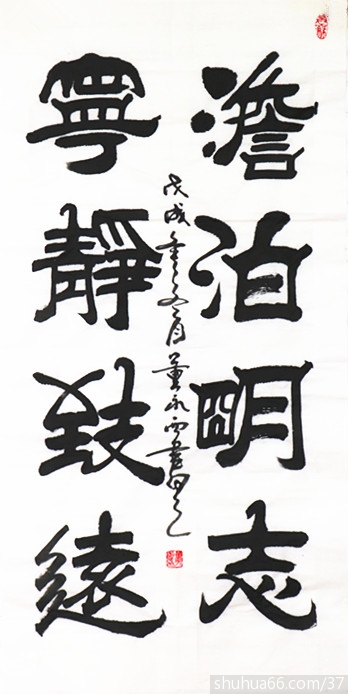 澹泊明志
寧靜致遠
戊戌年之夏月董永西書
shuhua66.com/37